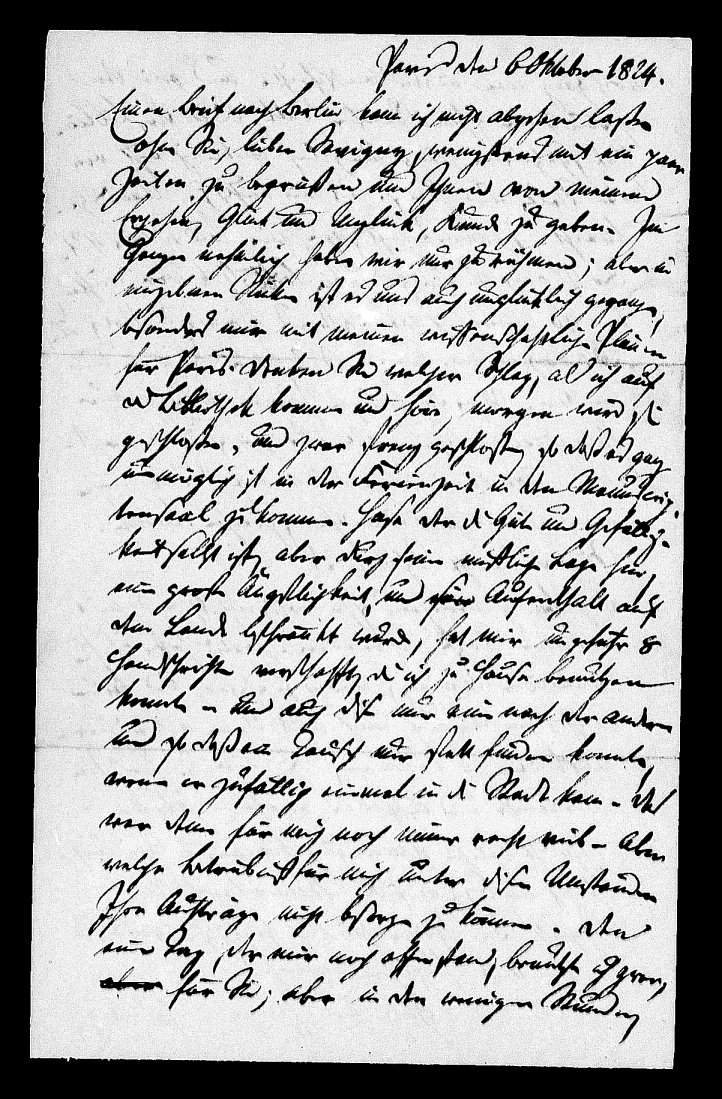 Paris den 6 Oktober 1824.
Einen Brief nach Berlin kann ich nicht abgehen lassen
ohne Sie, lieber Savigny, wenigstens mit ein paar
Zeilen zu begrüßen und Ihnen von meinem
Ergehen, Glück und Unglück, Kunde zu geben. Im
Ganzen nehmlich haben wir nur zu rühmen; aber im
einzelnen Stücken ist es uns auch unglücklich gegangen,
besonders mir mit meinen wissenschaftlichen Plänen
für Paris. Denken Sie welcher Schlag, als ich auf
die Bibliothek komme und höre, morgen wird sie
geschlossen, und zwar streng geschlossen, so daß es ganz
unmöglich ist in der Ferienzeit in den Manuscrip-
tensaal zu kommen. Hase der die Güte und Gefällig-
keit selbst ist, aber durch seine mißliche Lage hier,
eine große Ängstlichkeit, und sein Aufenthalt auf
dem Lande beschränkt wurde, hat mir ungefähr 8
Handschriften verschafft, die ich zu Hause benutzen
konnte – und auch dies nur eine nach der andern
und so daß der Tausch nur statt finden konnte,
wenn er zufällig einmal in die Stadt kam – das
war denn für mich noch immer recht viel – Aber
welche Betrübniß für mich unter diesen Umständen
Ihre Aufträge nicht besorgen zu können. Den
einen Tag, der mir noch offen stand, benutzte ich ganz
für Sie; aber in den wenigen Stunden